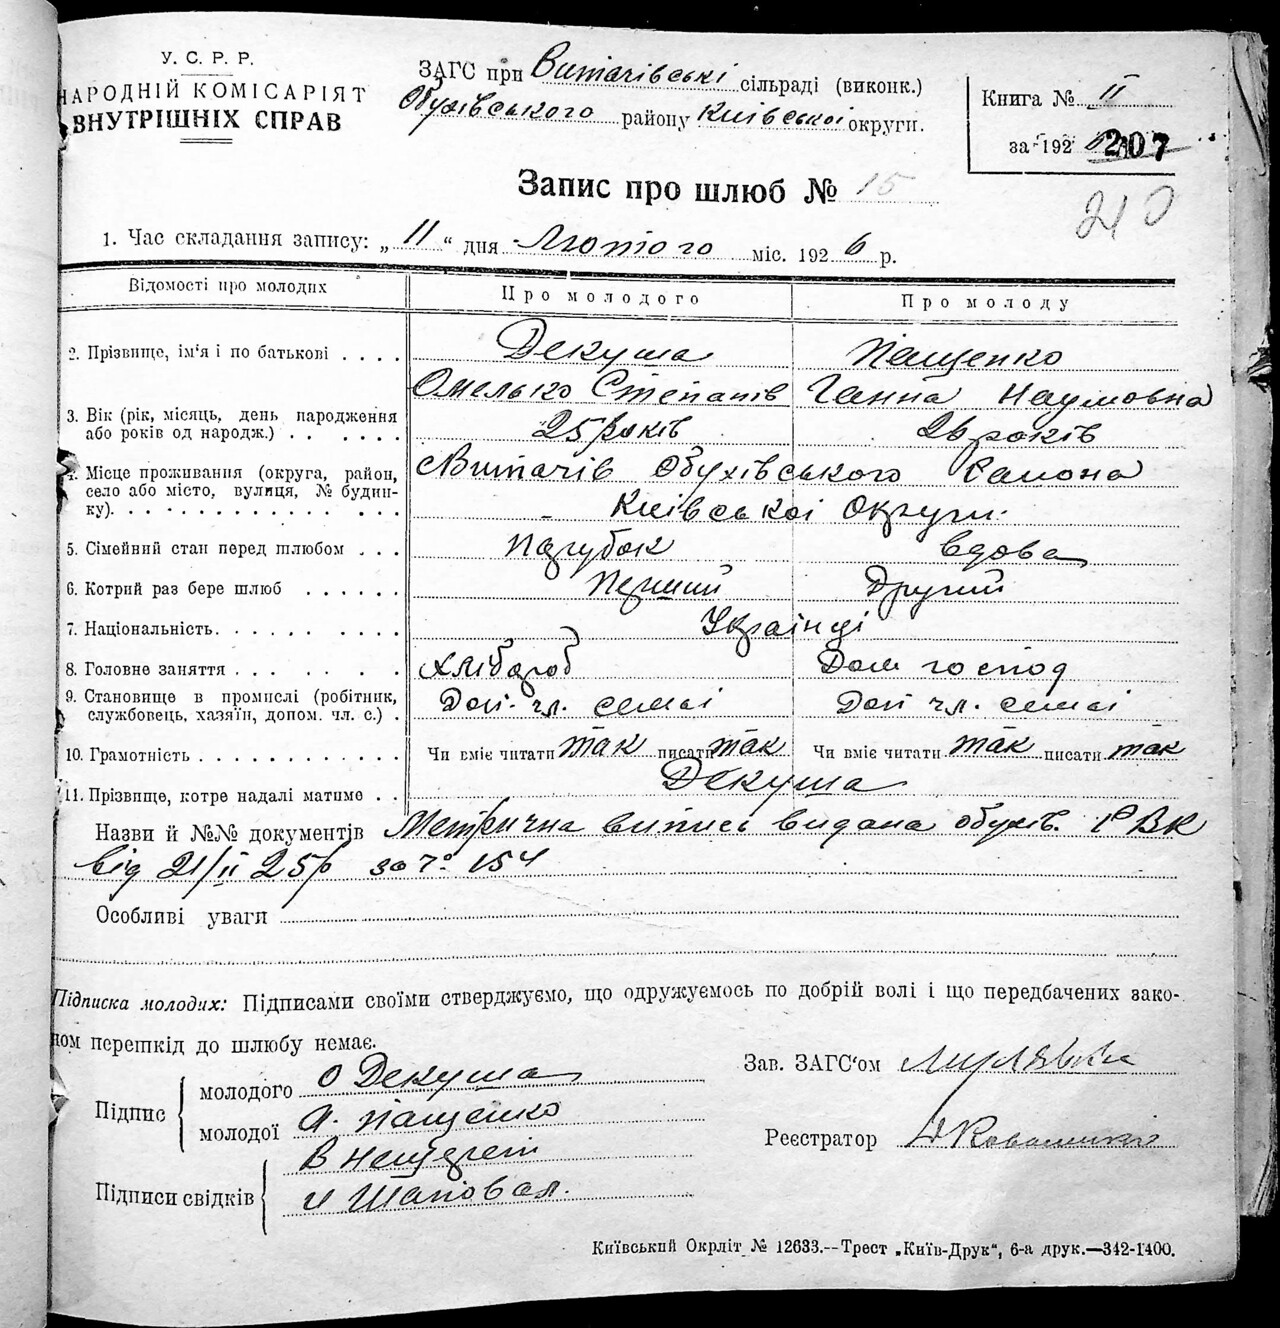 У. С. Р. Р.
НАРОДНІЙ КОМІСАРІЯТ
ВНУТРІШНІХ СПРАВ
ЗАГС при Витачівські сільраді (виконк.)
Обухівського району Київської округи.
Книга № II
за 192
207
210
Запис про шлюб № 15
1. Час складання запису: „11“ дня Лютого міс. 1926 р.
Відомості про молодих
Про молодого
Про молоду
2. Прізвище, ім'я і по батькові . . . . Декуша Пащенко
Омелько Степанів Ганна Наумовна
3. Вік (рік, місяць, день народження
або років од народж.) . . . . . . 25 років 26 років
4. Місце проживання (округа, район,
село або місто, вулиця, № будин-
ку). Витачів Обухівського Района
Київської Округи.
5. Сімейний стан перед шлюбом . . . Парубок Вдова
6. Котрий раз бере шлюб . . . . . . Перший Другий
7. Національність. Українці
8. Головне заняття . . . . Хлібороб Дом господ
9. Становище в промислі (робітник,
службовець, хазяїн, допом. чл. с.) . Доп. чл. семьї Доп чл. семьї
10. Грамотність . . . . Чи вміє читати так писати так Чи вміє читати так писати так
11. Прізвище, котре надалі матиме . . Декуша
Назви й №№ документів Метрична випись видана обухів. РВК
від 21/II 25р за № 154
Особливі уваги
Підписка молодих: Підписами своїми стверджуємо, що одружуємось по добрій волі і що передбачених зако-
ном перешкід до шлюбу немає.
Підпис
молодого О Декуша
молодої А. Пащенко
Підписи свідків
В Нещерет
И Шаповал.
Зав. ЗАГС'ом
Реєстратор
Київський Окрліт № 12633.--Трест „Київ-Друк“, 6-а друк.—342-1400.